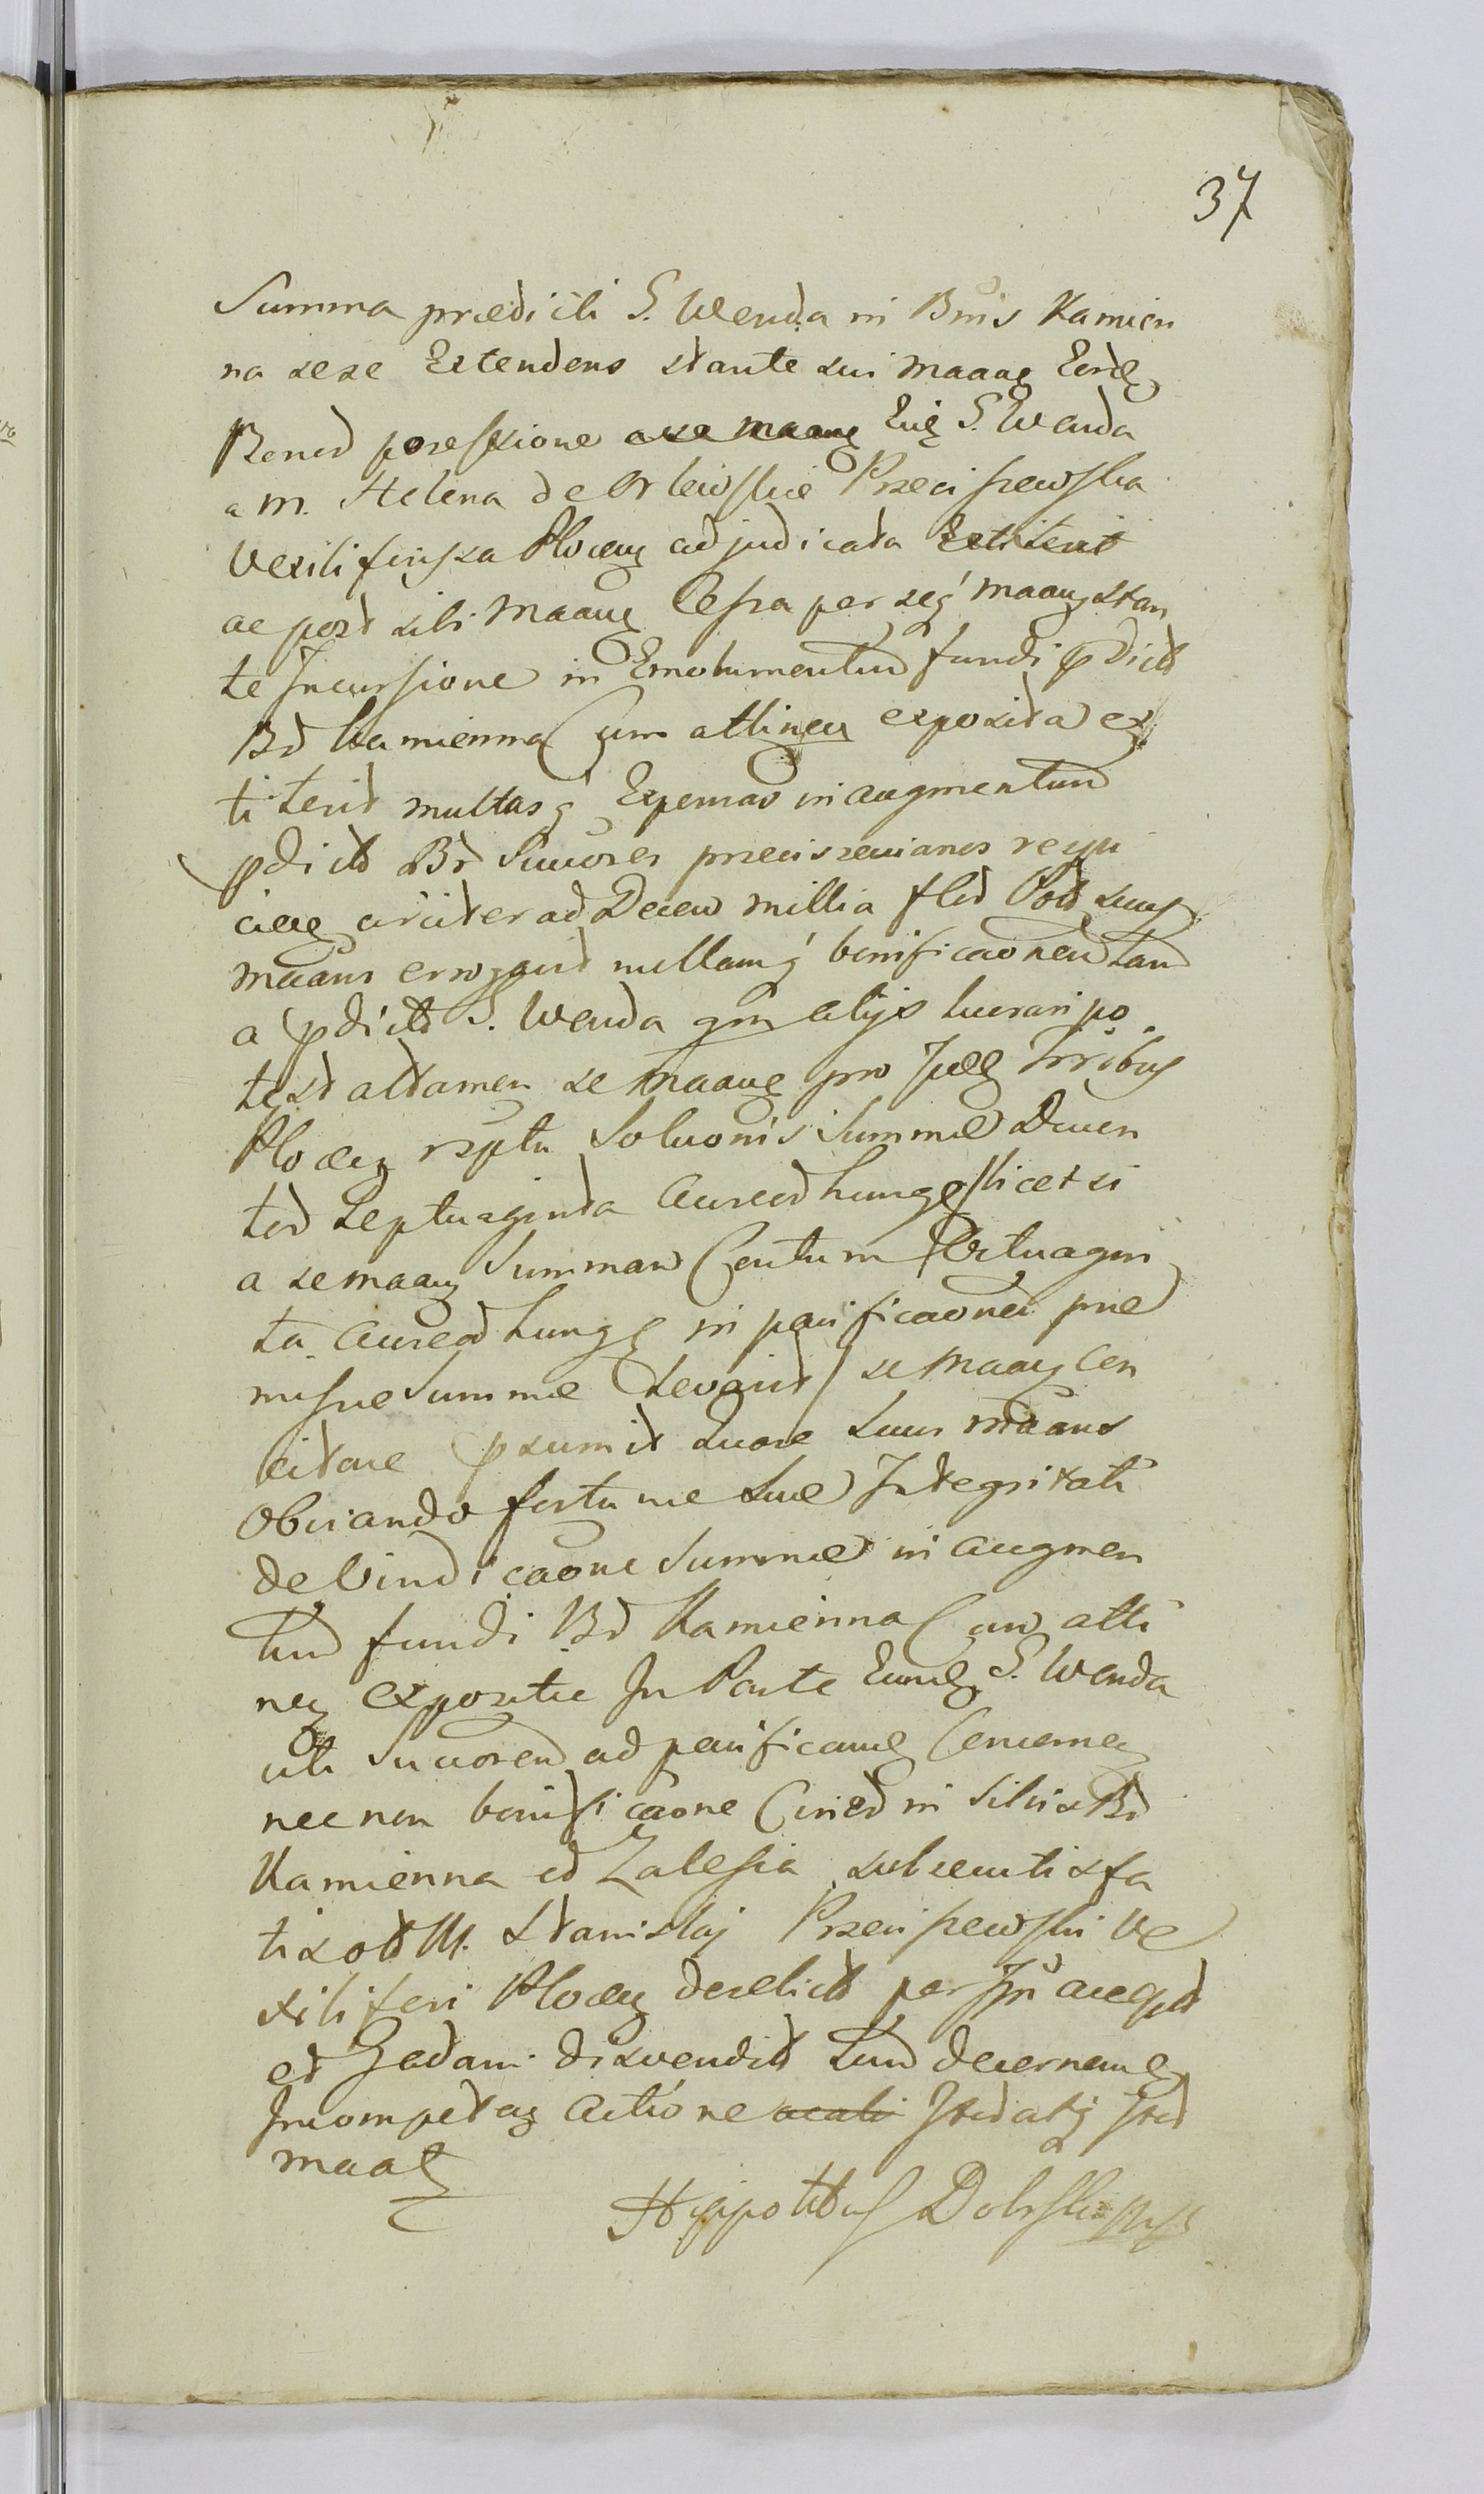 37
Summa prædicti S. Wenda in Bnis Kamien
na sese Extendens stante sui maang Eordg
Bonod possessione a se maang Eug S. Wenda
a M. Helena de Orlewskie Przeciszewska
Vexilifersza Plocen adjudicata Extiterit
ac post sibi maang Cessa per seq maang stan
te Incursione in Emolumentum fundi pdict
Bd Kamienna Cum attinen exposita ex
titerit multasq Expensas in augmentum
pdict Bd Succores przeciszevianos respi
cieng circiter ad Decem millia fld Pold suus
maans erogavit nullamq bonificaonem tam
a pdicto S. Wenda qm alijs lucrari po
test attamen se maang pro Judg Trribus
Plocen rptu Soluonis Summæ Ducen
tod Septuaginta Aureod hungo /licet si
a se maang Summam Centum Septuagin
ta Aureod hungo in pacificaonem præ
missæ Summæ levavit/ se maang Con
citare psumit Quare Suus maans
Obviando fortunæ suæ Integritati
de Vindicaone Summæ in augmen
tum fundi Bd Kamienna Cum atti
nen expositæ In Parte Eundg S. Wenda
uti Succorem ad pacificang Cencerneg
nec non bonificaone Cined in Silvis Bd
Kamienna et Zalesia subsecutis fa
tis olt M. Stanislaj Przeciszewski Ve
xiliferi Plocen derelict per Ipsu accept
et Gedani divendit tum decerneng
Incompetag Actione Itidatq Itd
maatg
Hyppolitus Dobrski mpp